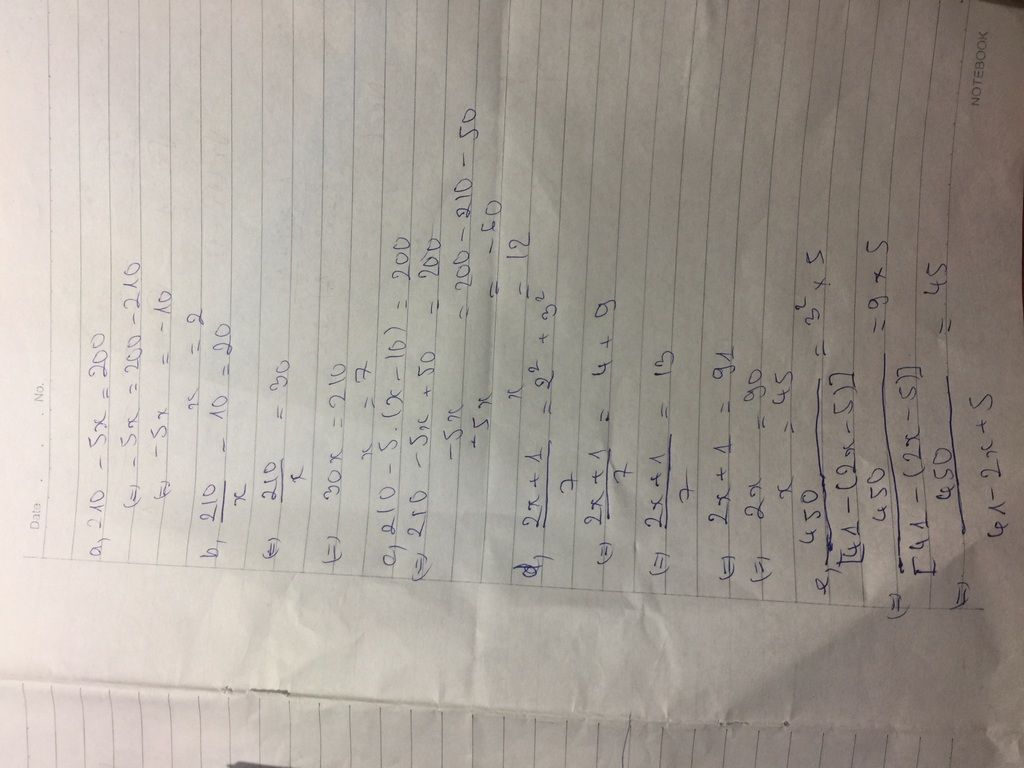 Date No.
a, 210 - 5x = 200
(=) -5x = 200 - 210
(=) -5x = -10
x = 2
b, 210/x - 10 = 20
(=) 210/x = 30
(=) 30x = 210
x = 7
c, 210 - 5.(x - 10) = 200
(=) 210 - 5x + 50 = 200
-5x = 200 - 210 - 50
-5x = -60
x = 12
d, (2x + 1)/7 = 2² + 3²
(=) (2x + 1)/7 = 4 + 9
(=) (2x + 1)/7 = 13
(=) 2x + 1 = 91
(=) 2x = 90
x = 45
e, 450/[41 - (2x - 5)] = 3² x 5
(=) 450/[41 - (2x - 5)] = 9 x 5
(=) 450/(41 - 2x + 5) = 45
NOTEBOOK